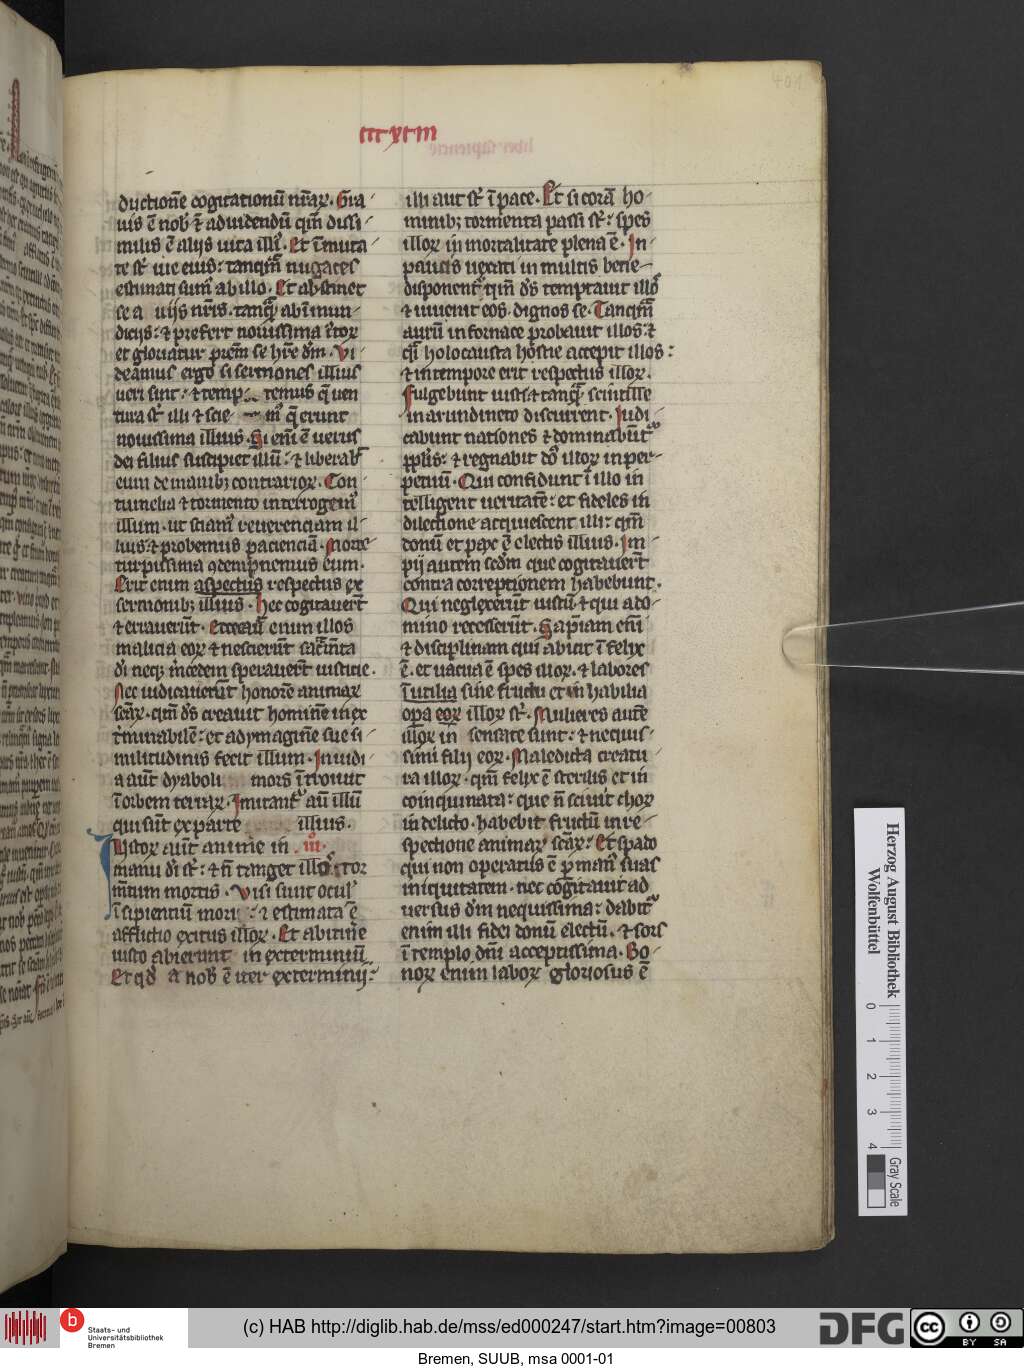 cccxciii
401
ductiōne cogitationū nr̄aꝝ. Gra-
uis ē nob̄ ⁊ ad uidendū qm̄ dissi-
milis ē alijs uita illiꝰ. Et īmuta-
te st̄ uie eius: tanqm̄ nugaces
estimati sumꝰ ab illo. Et abstinet
se a uijs nr̄is. tanqͣ ab īmun-
dicijs: ⁊ prefert nouissima iu̇stoꝝ
et gloriatur prēm se hr̄e dm̄. Vi-
deamus ergo si sermones illius
ueri sint: ⁊ temp temus q̄ uen
tura st̄ illi ⁊ scie mꝰ q̄ erunt
nouissima illius. Si eni̅ ē uerus
dei filius suscipiet illū: ⁊ liberab̄
eum de manibꝫ contrarioꝝ. Con-
tumelia ⁊ tormento interrogemꝰ
illum. ut sciamꝰ reuerenciam il-
lius. ⁊ probemus pacienciā. Morte-
turpissima ꝯdempnemus eum.
Erit enim aspectus respectus ex
sermonibꝫ illius. Hec cogitauer̄t
⁊ errauerūt. Excecauit enim illos
malicia eoꝝ ⁊ nescierūt sacr̄mta
dī neqꝫ m̄cedem sperauer̄t iusticie.
Nec iudicauerūt honorē animaꝝ
sc̄aꝝ. qm̄ ds̄ creauit hominē inex
t̄minabilē: et ad ymaginē sue si-
militudinis fecit illum. Inuidi-
a aūt dyaboli mors ītroiuit
ī orbem terraꝝ. Imitant̄ aū illū
qui sūt ex parte illius.
Iustoꝝ aūt anime in iiiͫ.
manu dī st̄: ⁊ n̄ tanget illoꝰ tor
m̄tum mortis. Visi sunt oculꝭ
īsipientiū mori: ⁊ estimata ē
afflictio exitus illoꝝ. Et ab itinēe
iusto abierunt in exterminiū.
Et qd̄ a nob̄ ē iter exterminij:
illi aut st̄ ī pace. Et si corā ho-
minibꝫ tormenta passi st̄: spes
illoꝝ in mortalitate plena ē. In-
paucis uexati in multis bene-
disponent̄. qm̄ ds̄ temptauit illoꝰ
⁊ inuenit eos dignos se. Tanqm̄
aurū in fornace probauit illos: ⁊
qͣ holocausta hostie accepit illos:
⁊ in tempore erit respectus illoꝝ.
Fulgebunt iusti ⁊ tanqͣ scintille
in arundineto discurrent. Iudi-
cabunt nationes ⁊ dominabūt̄
pplīs: ⁊ regnabit dn̄s illoꝝ in per-
petuū. Qui confidunt ī illo in
telligent ueritatē: et fideles in
dilectione acquiescent illi: qm̄
donū et pax ē electis illius. Im-
pij autem scdm̄ que cogitauer̄t
contra correptionem habebunt.
Qui neglexerūt iustū ⁊ qui a do-
mino recesserūt. Sapi̅am eni̅
⁊ disciplinam qui abicit ī felix
ē. et uacua ē spes illoꝝ. ⁊ labores
ī utilia sine fructu et in habilia
opa eoꝝ illoꝝ st̄. Mulieres autē
illoꝝ in sensate sunt: ⁊ nequis-
simi filij eoꝝ. Maledicta creatu-
ra illoꝝ. qm̄ felix ē sterilis et in
coinquinata: que n̄ sciuit thoꝝ
in delicto. habebit fructū in re-
spectione animaꝝ sc̄aꝝ: Et spado
qui non operatus ē ꝑ manꝰ suas
iniquitatem. nec cogitauit ad
uersus dm̄ nequissima: dabit̄
enim illi fidei donū electū. ⁊ sors
ī templo dn̄i acceptissima. Bo-
noꝝ enim laboꝝ gloriosus ē
Herzog August Bibliothek
Wolfenbüttel
0 1 2 3 4
Gray Scale
b Staats- und
Universitätsbibliothek
Bremen
(c) HAB http://diglib.hab.de/mss/ed000247/start.htm?image=00803
DFG
cc BY SA
Bremen, SUUB, msa 0001-01